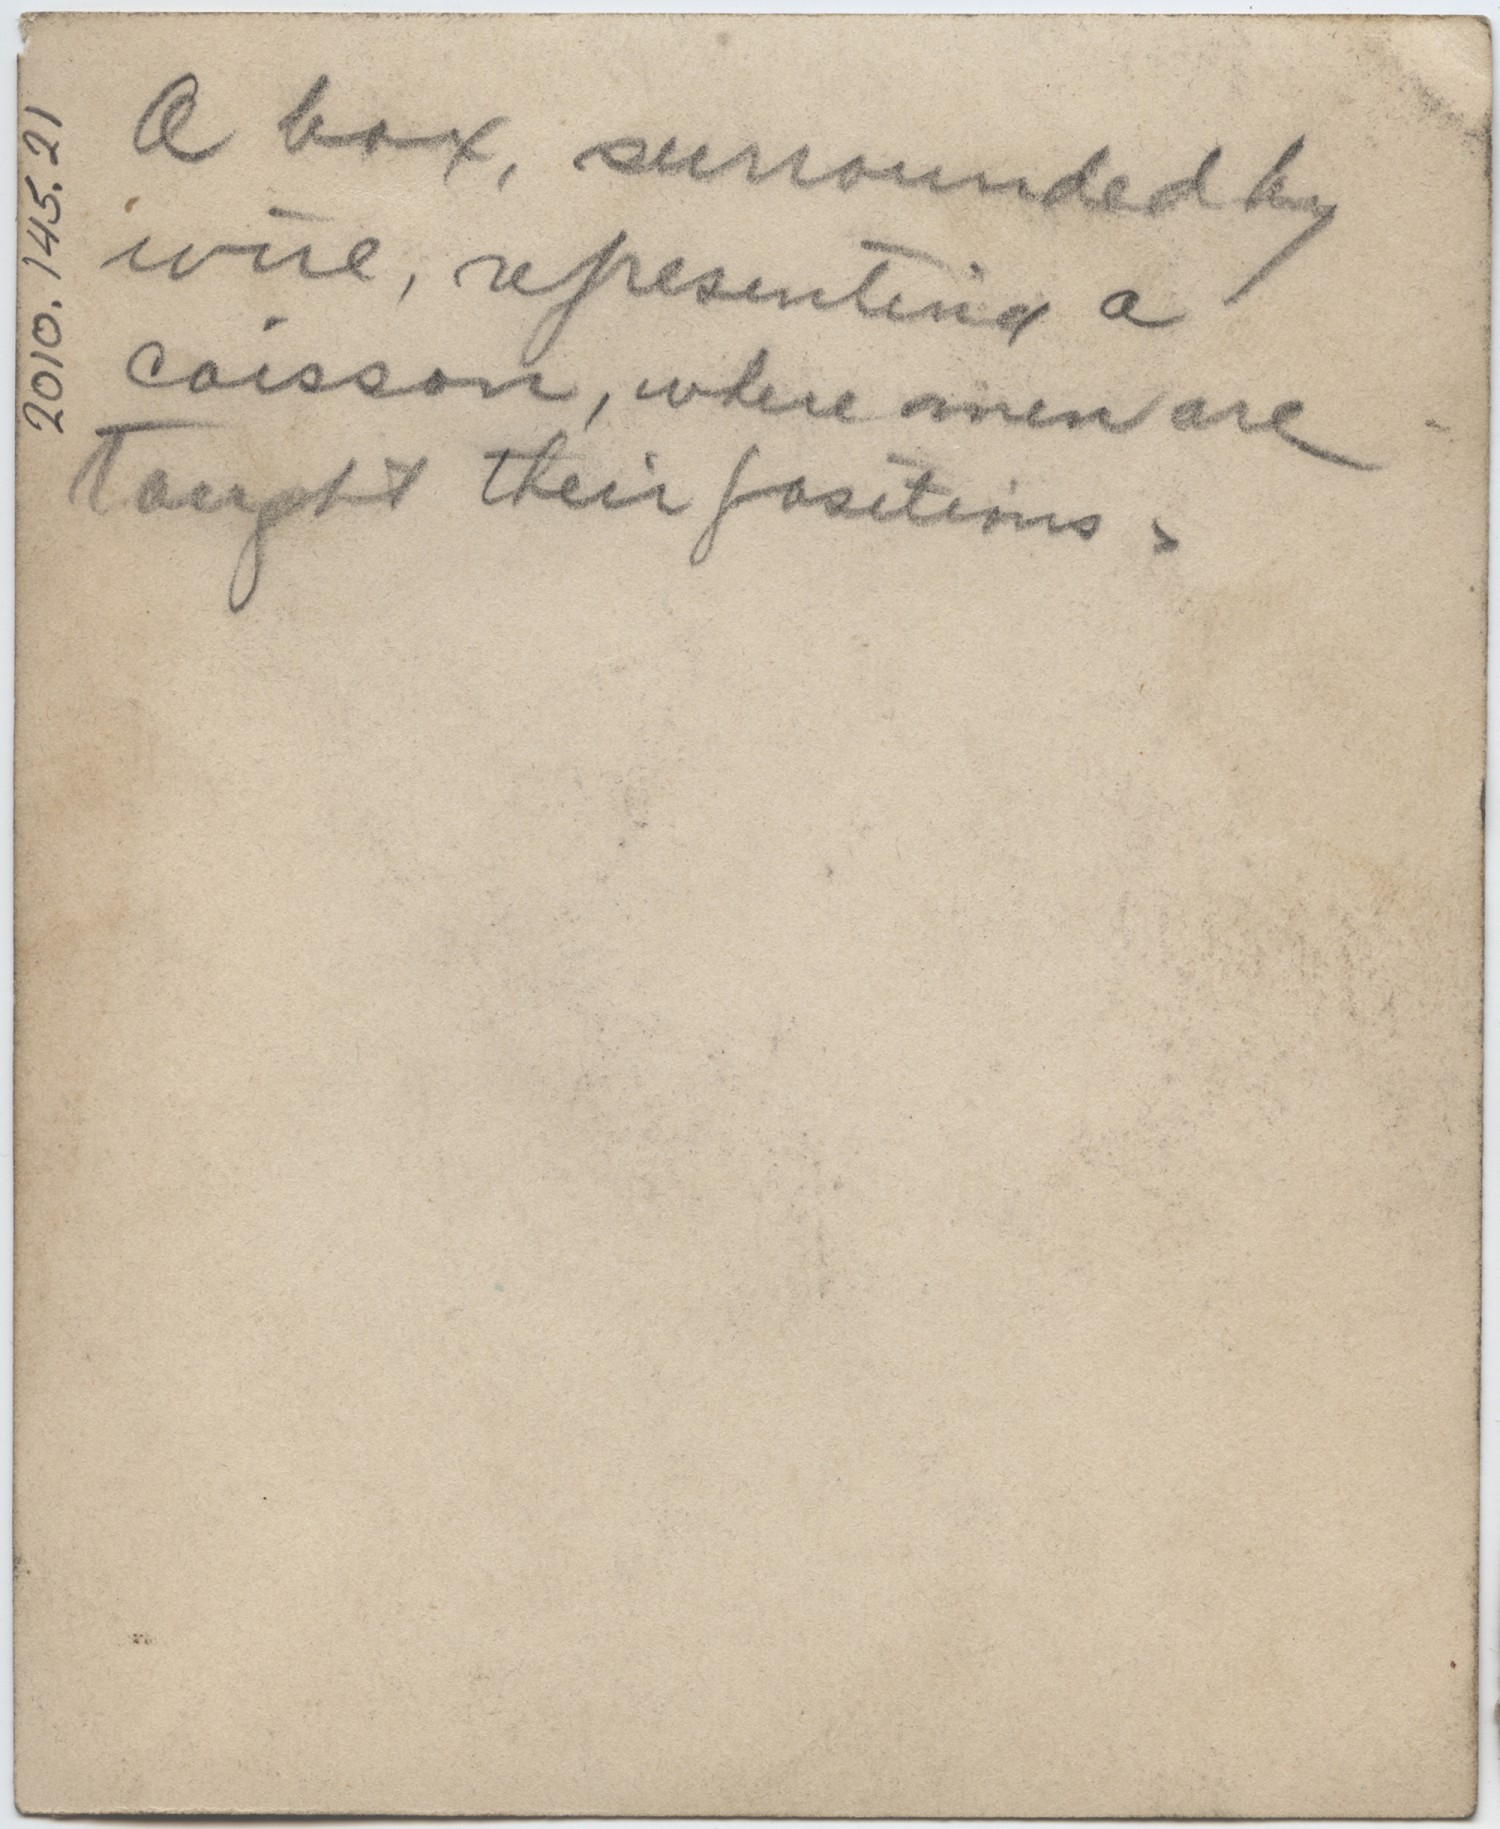 2010.145.21
A box, surrounded by
wire, representing a
caisson, where men are
taught their positions.